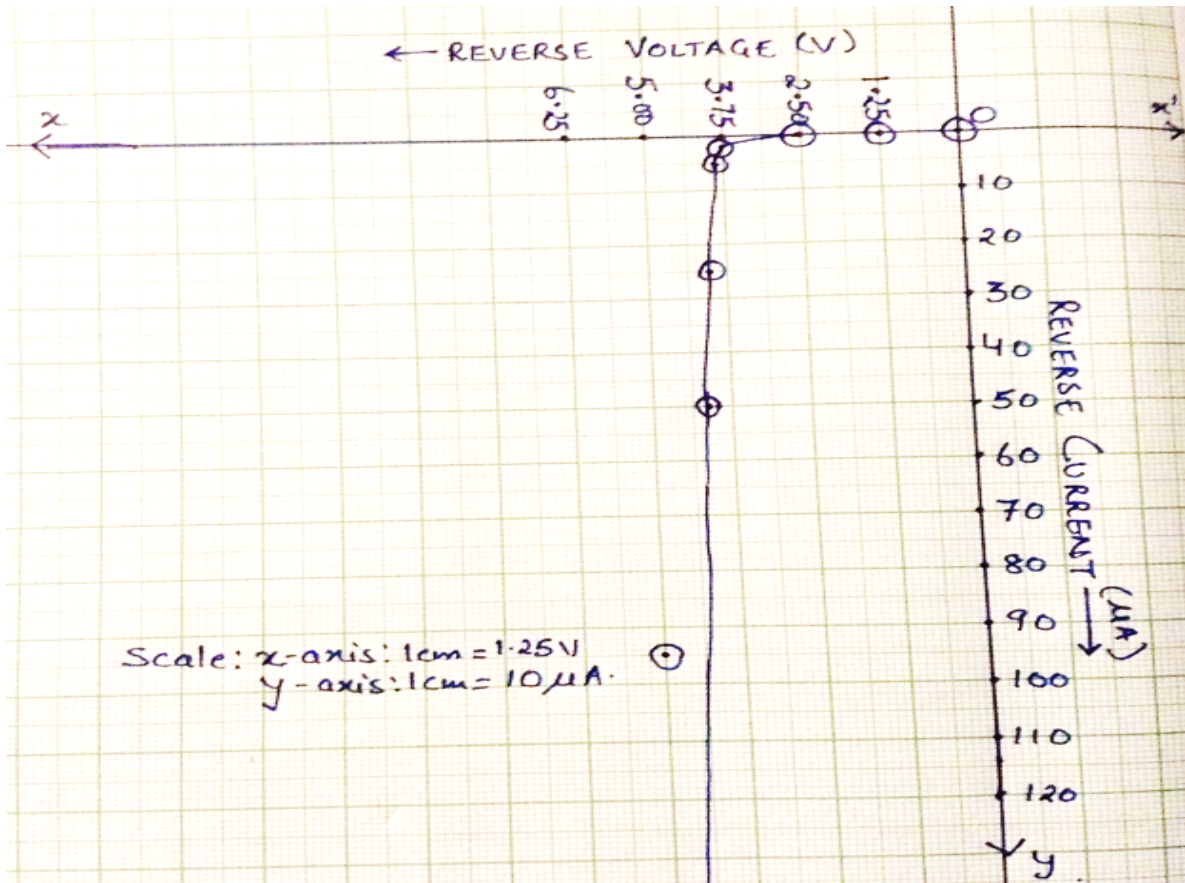 ← REVERSE VOLTAGE (V)
x
6.25
5.00
3.75
2.50
1.25
0
x'
10
20
30
40
50
60
70
80
90
100
110
120
REVERSE CURRENT → (μA)
Scale: x-axis: 1cm = 1.25V
y-axis: 1cm = 10 μA.
y